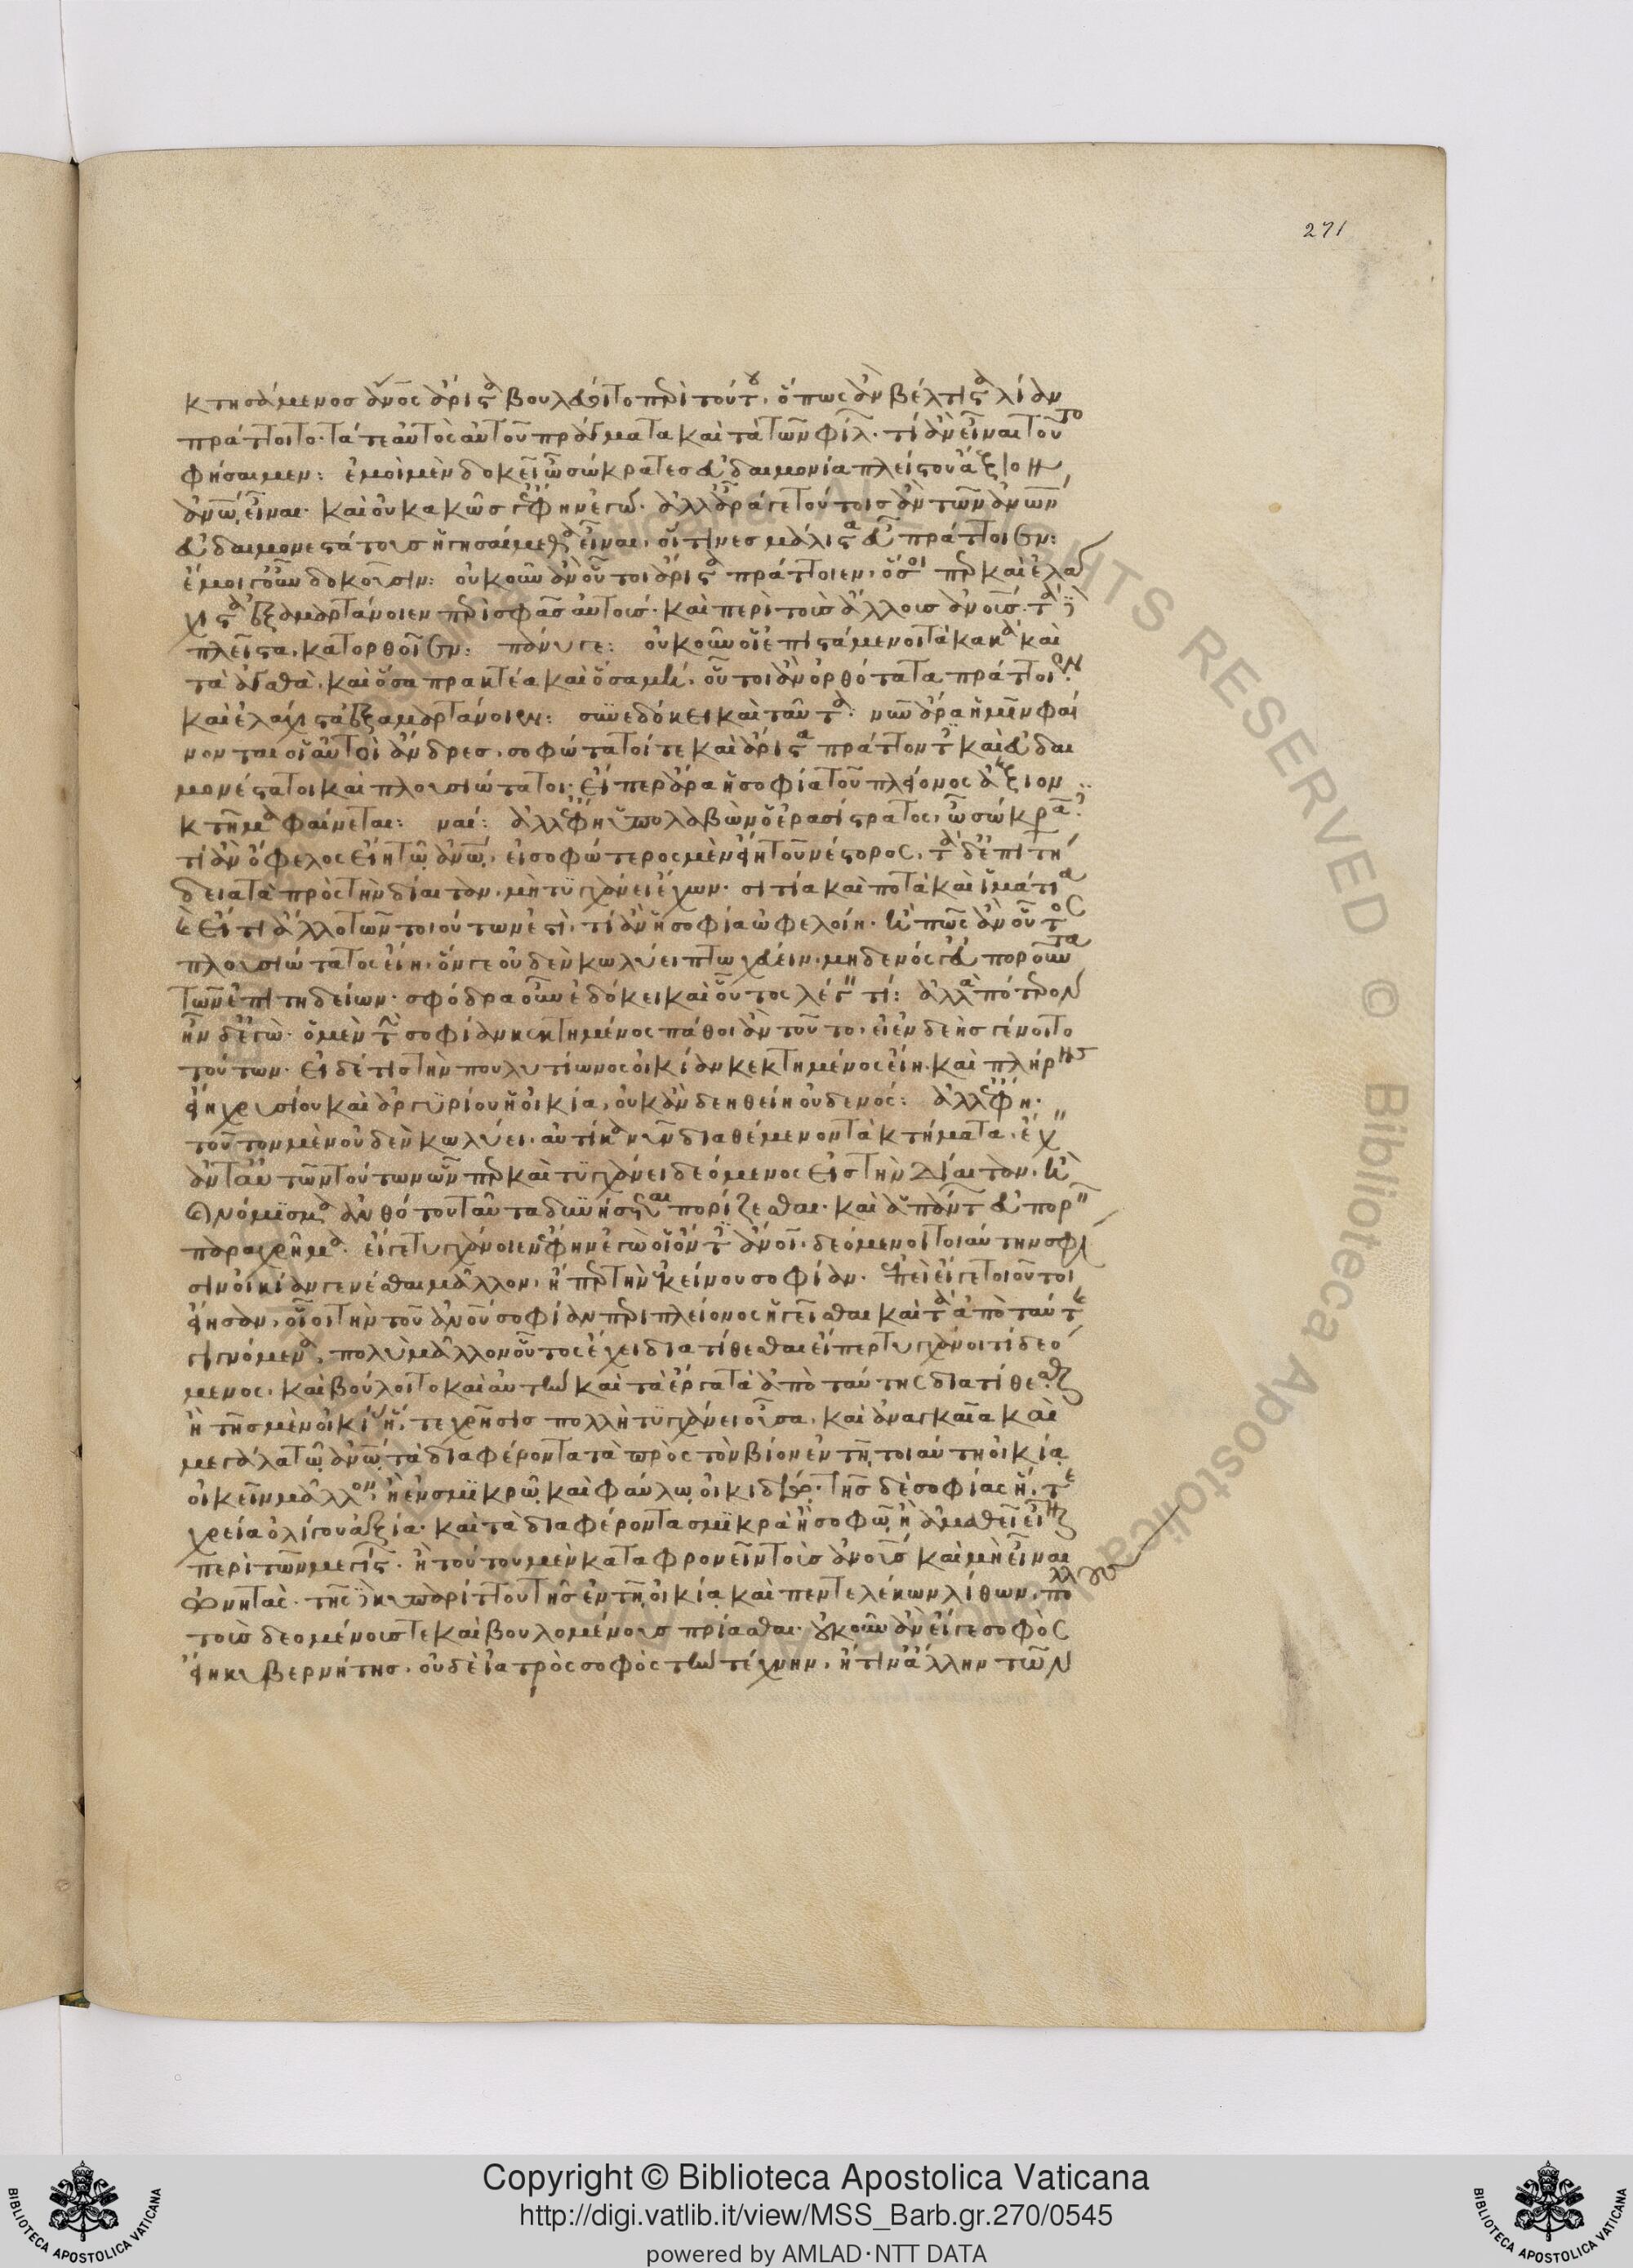 271
κτησάμενος ἄνος ἄριστα βουλεύοιτο περὶ τούτου, ὅπως ἂν βέλτιστα λίαν
πράττοιτο· τά τε αὐτὸς αὑτοῦ πράγματα καὶ τὰ τῶν φίλ· τί ἂν εἶναι τοῦτο
φήσαιμεν: ἐμοὶ μὲν δοκεῖ ὦ σώκρατες εὐδαιμονία πλείστου ἄξιον
ἀνῳ εἶναι· καὶ οὐ κακῶς γ' ἔφην ἐγώ· ἀλλ' ἆρά γε τούτοις ἂν τῶν ἀνων
εὐδαιμονεστάτους ἡγησαίμεθα εἶναι, οἵτινες μάλιστα εὖ πράττοιεν:
ἐμοὶ γοῦν δοκοῦσιν: οὐκοῦν ἂν οὗτοι ἄριστα πράττοιεν, ὅσοι περ καὶ ἐλά
χιστα ἐξαμαρτάνοιεν περὶ σφᾶς αὐτούς· καὶ περὶ τοὺς ἄλλους ἀνους· τὰ δὲ
πλεῖστα, κατορθοῖεν: πάνυ γε: οὐκοῦν οἱ ἐπιστάμενοι τὰ κακὰ καὶ
τὰ ἀγαθὰ, καὶ ὅσα πρακτέα καὶ ὅσα μὴ, οὗτοι ἂν ὀρθότατα πράττοιεν
καὶ ἐλάχιστα ἐξαμαρτάνοιεν: συνεδόκει καὶ ταῦτα· νῦν ἄρα ἡμῖν φαί
νονται οἱ αὐτοὶ ἄνδρες, σοφώτατοί τε καὶ ἄριστα πράττοντες καὶ εὐδαι
μονέστατοι καὶ πλουσιώτατοι· εἴπερ ἄρα ἡ σοφία τοῦ πλείονος ἄξιον
κτῆμα φαίνεται: ναί: ἀλλ' ἔφη ὑπολαβὼν ὁ ἐρασίστρατος, ὦ σώκρατες
τί ἂν ὄφελος εἴη τῷ ἀνῳ, εἰ σοφώτερος μὲν εἴη τοῦ νέστορος, τὰ δ' ἐπιτή
δεια τὰ πρὸς τὴν δίαιταν, μὴ τυγχάνει ἔχων· σιτία καὶ ποτὰ καὶ ἱμάτια
καὶ εἴ τι ἄλλο τῶν τοιούτων ἐστὶ, τί ἂν ἡ σοφία ὠφελοίη· ἢ πῶς ἂν οὗτος
πλουσιώτατος εἴη, ὅν γε οὐδὲν κωλύει πτωχεύειν, μηδενός γ' εὐποροῦντα
τῶν ἐπιτηδείων· σφόδρα οὖν ἐδόκει καὶ οὗτος λέγειν τί: ἀλλὰ πότερον
ἦν δ' ἐγώ· ὁ μὲν τὴν σοφίαν κεκτημένος πάθοι ἂν τοῦτο, εἰ ἐνδεὴς γένοιτο
τούτων· εἰ δέ τις τὴν πουλυτίωνος οἰκίαν κεκτημένος εἴη, καὶ πλήρης
εἴη χρυσίου καὶ ἀργυρίου ἡ οἰκία, οὐκ ἂν δεηθείη οὐδενός: ἀλλ' ἔφη·
τοῦτον μὲν οὐδὲν κωλύει, αὐτίκα νῦν διαθέμενον τὰ κτήματα, ἔχειν
ἀντ' αὐτῶν τούτων ὧνπερ καὶ τυγχάνει δεόμενος εἰς τὴν δίαιταν, ἢ
νόμισμα ἀνθ' ὅτου ταῦτα δυνήσεται πορίζεσθαι· καὶ ἁπάντων εὐπορεῖν
παραχρῆμα· εἴ γε τυγχάνοιεν ἔφην ἐγὼ οἱ ὄντες ἄνοι, δεόμενοι τοιαύτην σφί
σιν οἰκίαν γενέσθαι μᾶλλον, ἤπερ τὴν ἐκείνου σοφίαν· ἐπεὶ εἴ γε τοιοῦτοι
εἴησαν, οἷοι τὴν τοῦ ἀνου σοφίαν περὶ πλείονος ἡγεῖσθαι καὶ τὰ ἀπὸ ταύτης
γιγνόμενα, πολὺ μᾶλλον οὗτος ἔχει διατίθεσθαι εἴπερ τυγχάνοι τί δεό
μενος, καὶ βούλοιτο καὶ αὐτὴν καὶ τὰ ἔργα τὰ ἀπὸ ταύτης διατίθεσθαι
ἢ τῆς μὲν οἰκίας ἥ, τε χρῆσις πολλὴ τυγχάνει οὖσα, καὶ ἀναγκαία καὶ
μεγάλα τῷ ἀνῳ τὰ διαφέροντα τὰ πρὸς τὸν βίον ἐν τῇ τοιαύτῃ οἰκίᾳ
οἰκεῖν μᾶλλον, ἢ ἐν σμικρῷ καὶ φαύλῳ οἰκιδίῳ· τῆς δὲ σοφίας ἥ, τε
χρεία ὀλίγου ἀξία· καὶ τὰ διαφέροντα σμικρὰ ἢ σοφῷ ἢ ἀμαθεῖ εἶναι
περὶ τῶν μεγίστων· ἢ τούτου μὲν καταφρονεῖν τοὺς ἀνους καὶ μὴ εἶναι
ὠνητάς· τῆς δὲ κυπαρίττου τῆς ἐν τῇ οἰκίᾳ καὶ πεντελέκων λίθων, πολλοὺς
τοὺς δεομένους τε καὶ βουλομένους πρίασθαι· οὐκοῦν ἂν εἴ γε σοφὸς
εἴη κυβερνήτης, οὐδὲ ἰατρὸς σοφὸς τὴν τέχνην, ἤ τιν' ἄλλην τῶν
Copyright © Biblioteca Apostolica Vaticana
http://digi.vatlib.it/view/MSS_Barb.gr.270/0545
powered by AMLAD·NTT DATA